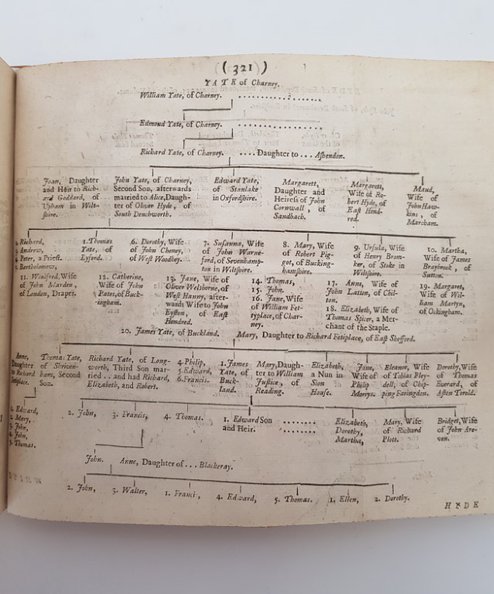 ( 321 )
YATE of Charney.
William Yate, of Charney.
Edmond Yate, of Charney.
Richard Yate, of Charney. .... Daughter to ... Ashendon.
Joan, Daughter
and Heir to Rich-
ard Goddard, of
Upham in Wilt-
shire.
John Yate, of Charney,
Second Son, afterwards
married to Alice, Daugh-
ter of Oliver Hyde, of
South Denchworth.
Edward Yate,
of Stanlake
in Oxfordshire.
Margarett,
Daughter and
Heiress of John
Cornwall, of
Sandbach.
Margarett,
Wife of Ro-
bert Hyde, of
East Hend-
red.
Maud,
Wife of
John Haw-
kins, of
Marcham.
Richard,
Andrew,
Peter, a Priest.
Bartholomew,
1. Thomas
Yate, of
Lyford.
6. Dorothy, Wife
of John Cheney,
of West Woodhey.
7. Susanna, Wife
of John Warne-
ford, of Sevenhamp-
ton in Wiltshire.
8. Mary, Wife
of Robert Pig-
got, of Bucking-
hamshire.
9. Ursula, Wife
of Henry Brun-
ker, of Stoke in
Wiltshire.
10. Martha,
Wife of James
Braybrook, of
Sutton.
11. Winifred, Wife
of John Marden,
of London, Draper.
12. Catherine,
Wife of John
Yates, of Buck-
ingham.
13. Jane, Wife of
Oliver Welborne, of
West Hanney, after-
wards Wife to John
Eyston, of East
Hendred.
14. Thomas,
15. John.
16. Jane, Wife
of William Fet-
typlace, of Char-
ney.
17. Anne, Wife of
John Latton, of Chil-
ton.
18. Elizabeth, Wife of
Thomas Spicer, a Mer-
chant of the Staple.
19. Margaret,
Wife of Wil-
liam Martyn,
of Ockingham.
20. James Yate, of Buckland.
Mary, Daughter to Richard Fetiplace, of East Shefford.
Anne,
Daughter of
to Richard
Fetiplace.
Thomas Yate,
Second
Son.
Richard Yate, of Long-
worth, Third Son mar-
ried .. and had Richard,
Elizabeth, and Robert.
4. Philip,
5. Edward,
6. Francis.
1. James
Yate, of
Buck-
land.
Mary, Daugh-
ter to William
Justice, of
Reading.
Elizabeth,
a Nun in
Sion
House.
Jane,
Wife of
Philip
Morys.
Eleanor, Wife
of Tobias Pley-
dell, of Chip-
ping Faringdon.
Dorothy, Wife
of Thomas
Everard, of
Aston Torold.
Edward,
Mary,
John,
John,
Thomas.
2. John,
3. Francis,
4. Thomas.
1. Edward Son
and Heir.
Elizabeth,
Dorothy,
Martha,
Mary, Wife
of Richard
Plott.
Bridget, Wife
of John Are-
van.
John.
Anne, Daughter of ... Blackeray.
2. John,
3. Walter,
1. Franci,
4. Edward,
5. Thomas.
1. Ellen,
2. Dorothy.
HYDE